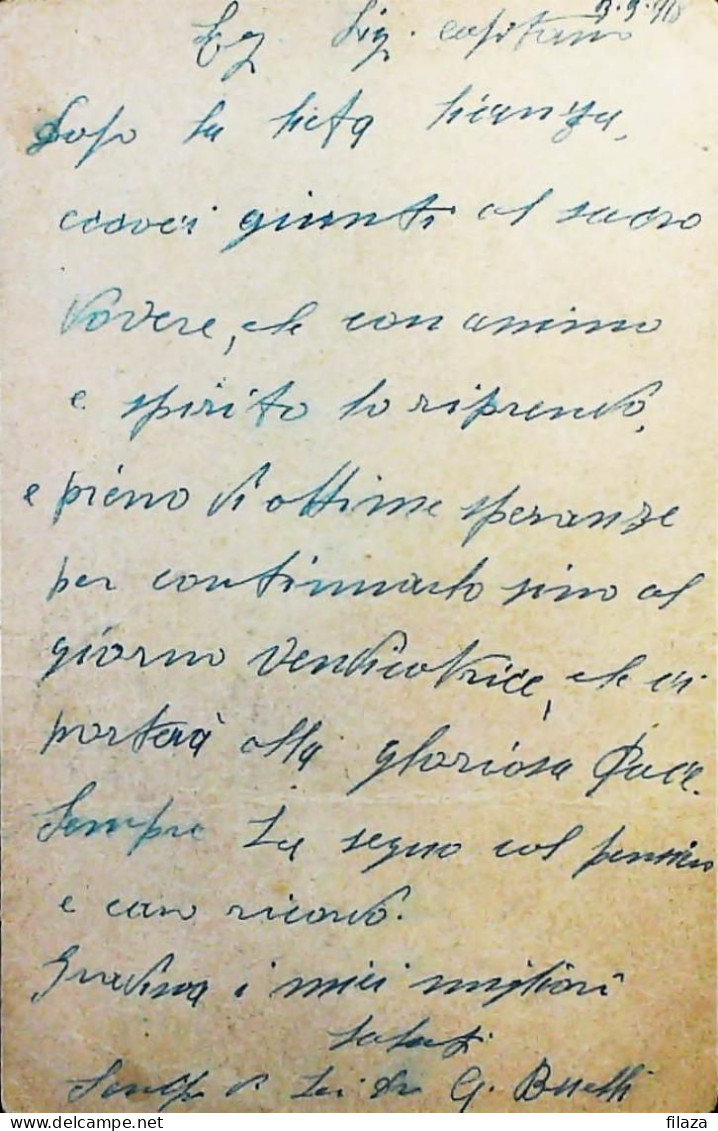 3.9.918
Eg. Sig. Capitano
Dopo la lieta licenza,
eccoci giunti al sacro
dovere, che con animo
e spirito lo riprendo,
e pieno di ottime speranze
per continuarlo sino al
giorno vendicatrice, che ci
porterà alla gloriosa Pace.
Sempre La seguo col pensiero
e caro ricordo.
Gradisca i miei migliori
saluti
di Lei G.
filaza